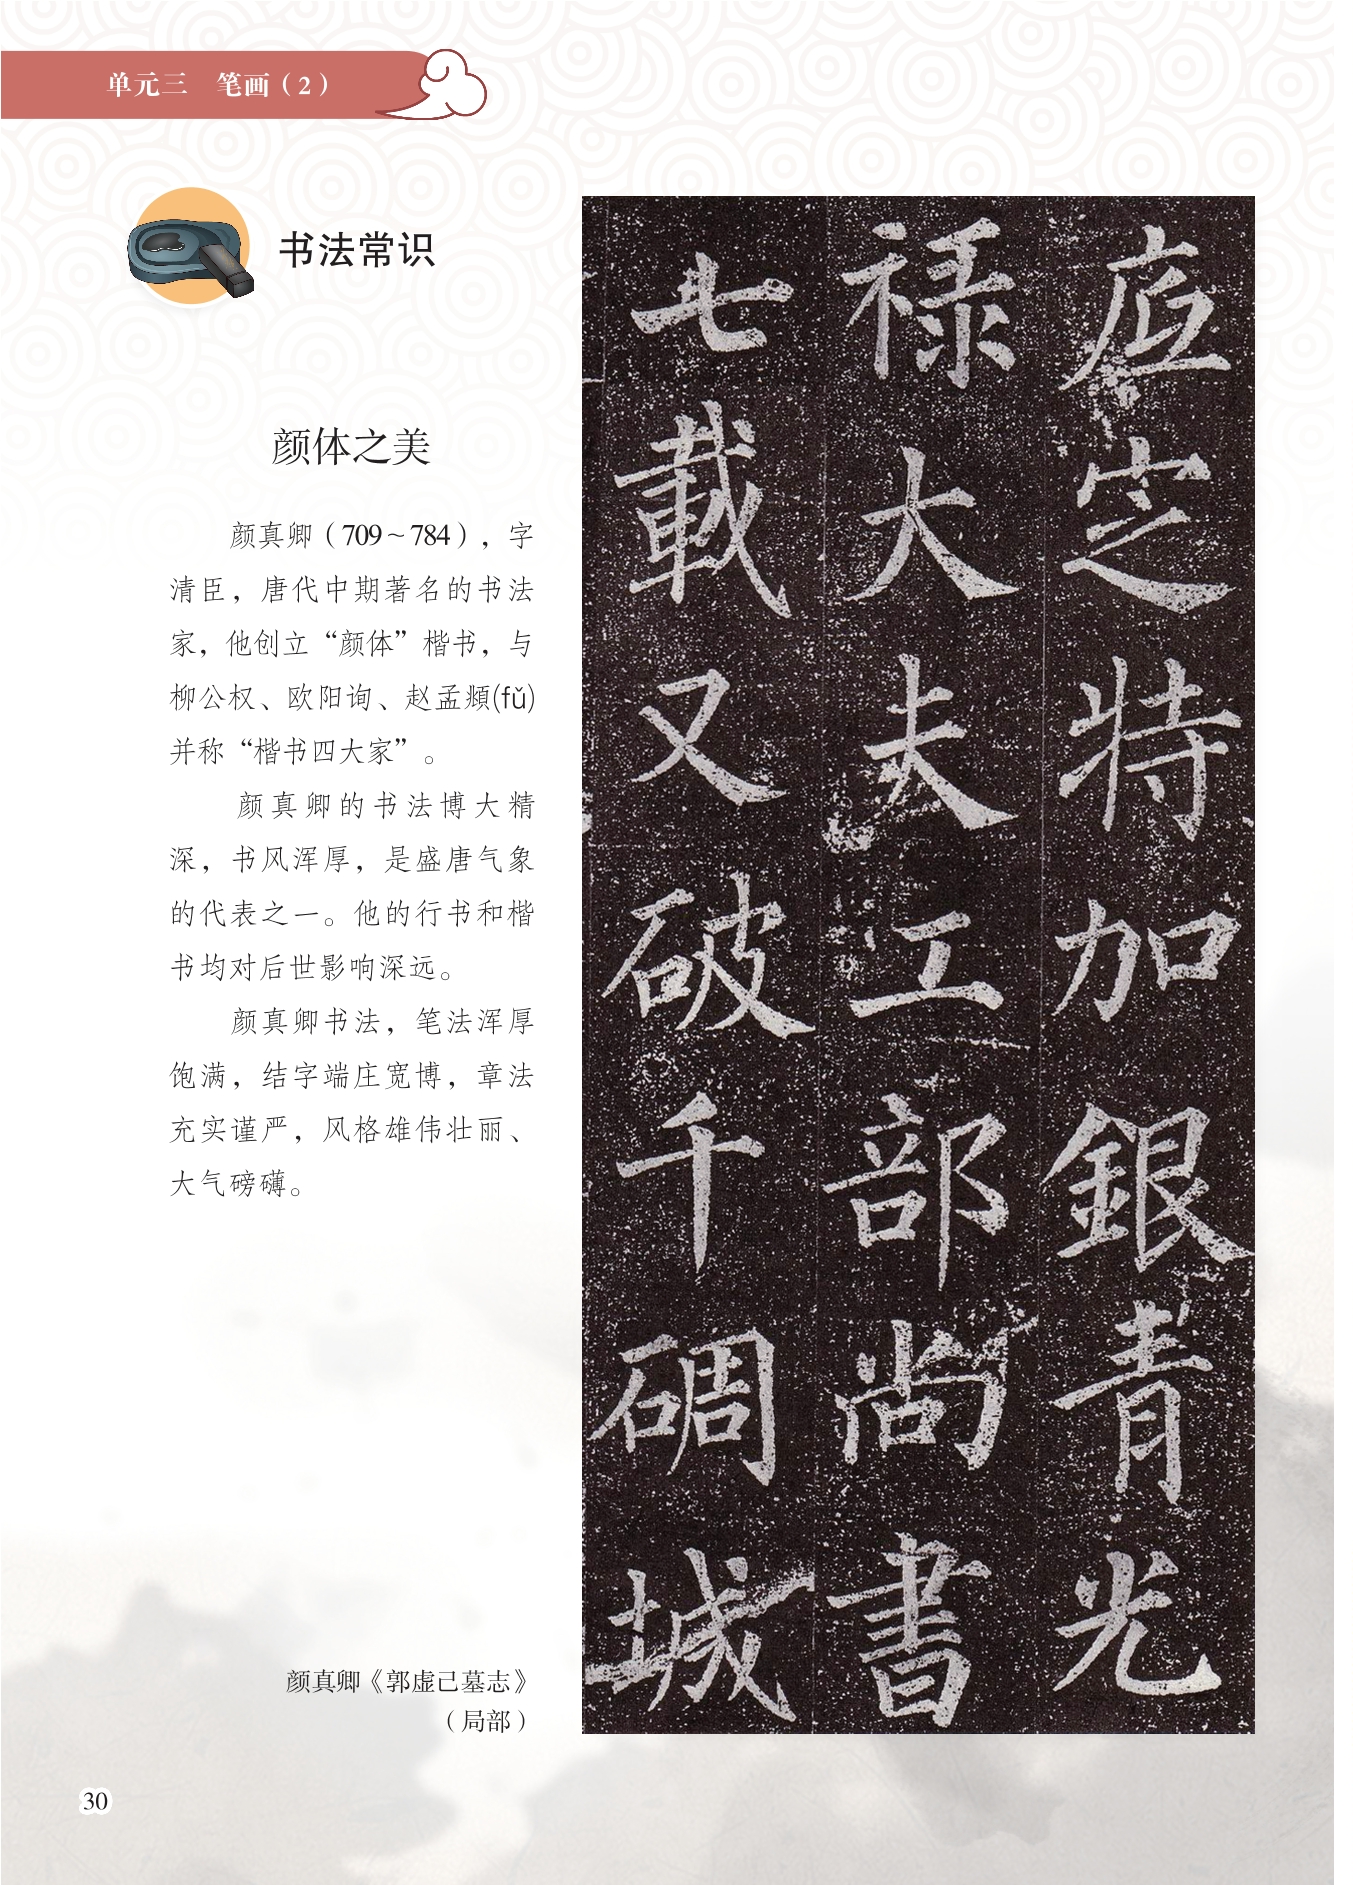 单元三 笔画（2）
书法常识
颜体之美
颜真卿（709～784），字
清臣，唐代中期著名的书法
家，他创立“颜体”楷书，与
柳公权、欧阳询、赵孟頫(fǔ)
并称“楷书四大家”。
颜真卿的书法博大精
深，书风浑厚，是盛唐气象
的代表之一。他的行书和楷
书均对后世影响深远。
颜真卿书法，笔法浑厚
饱满，结字端庄宽博，章法
充实谨严，风格雄伟壮丽、
大气磅礴。
底定特加銀青光
禄大夫工部尚書
七載又破千碉城
颜真卿《郭虚己墓志》
（局部）
30